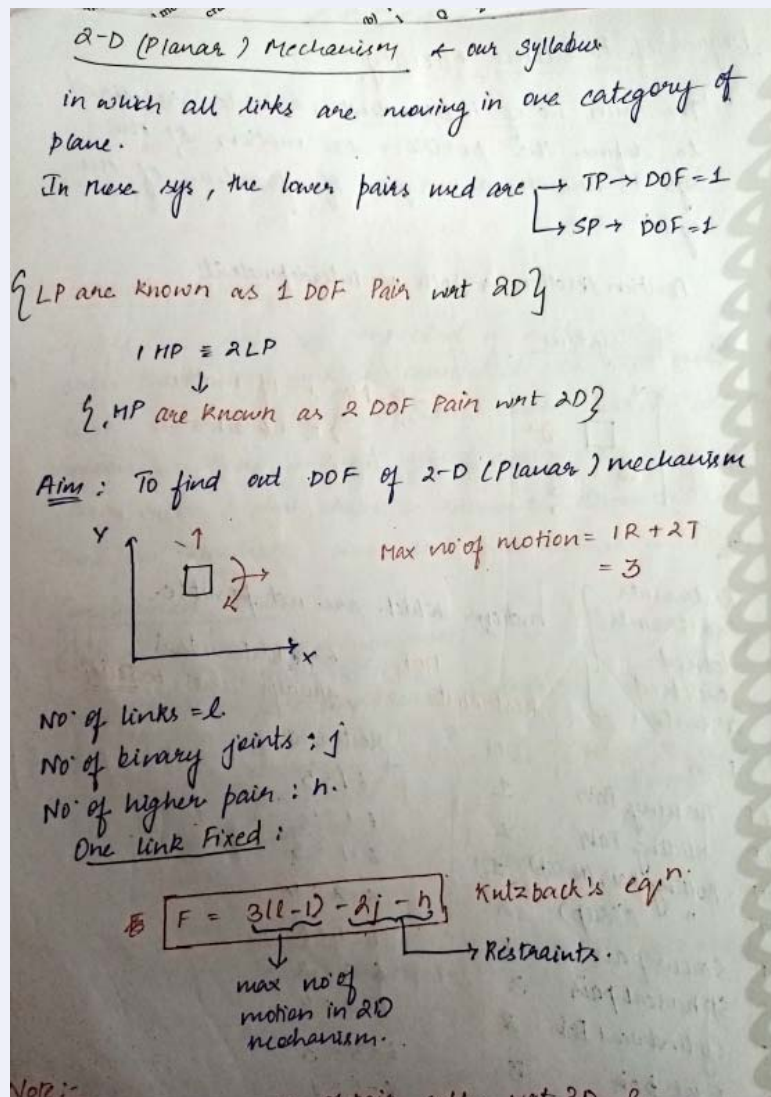 (b)
2-D (Planar) Mechanism ← our syllabus
in which all links are moving in one category of
plane.
In these sys, the lower pairs used are → TP → DOF = 1
↳ SP → DOF = 1
{LP are known as 1 DOF Pair wrt 2D}
1 HP ≡ 2LP
↓
{HP are known as 2 DOF Pair wrt 2D}
Aim : To find out DOF of 2-D (Planar) mechanism
Y
Max no of motion = 1R + 2T
= 3
X
No of links = l.
No of binary joints : j
No of higher pair : h.
One link Fixed :
F = 3(l-1) - 2j - h Kutzback's eqn.
→ Restraints.
max no of
motion in 2D
mechanism.
Note :-
wrt 2D